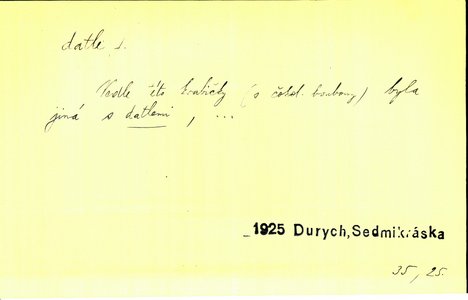 datle f.
Vedle této krabičky (s čokol. bonbony) byla
jiná s datlemi, ...
1925 Durych, Sedmikráska
35, 25.